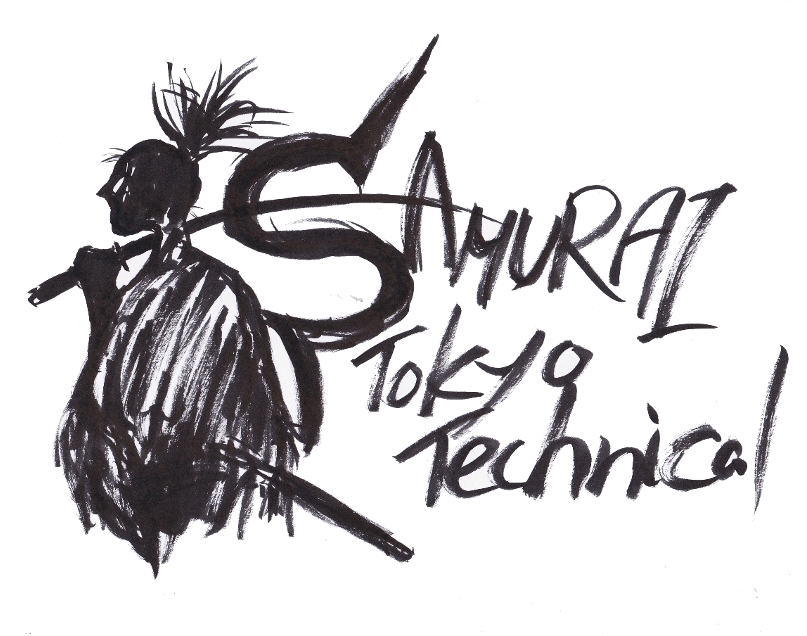 SAMURAI
Tokyo
Technical